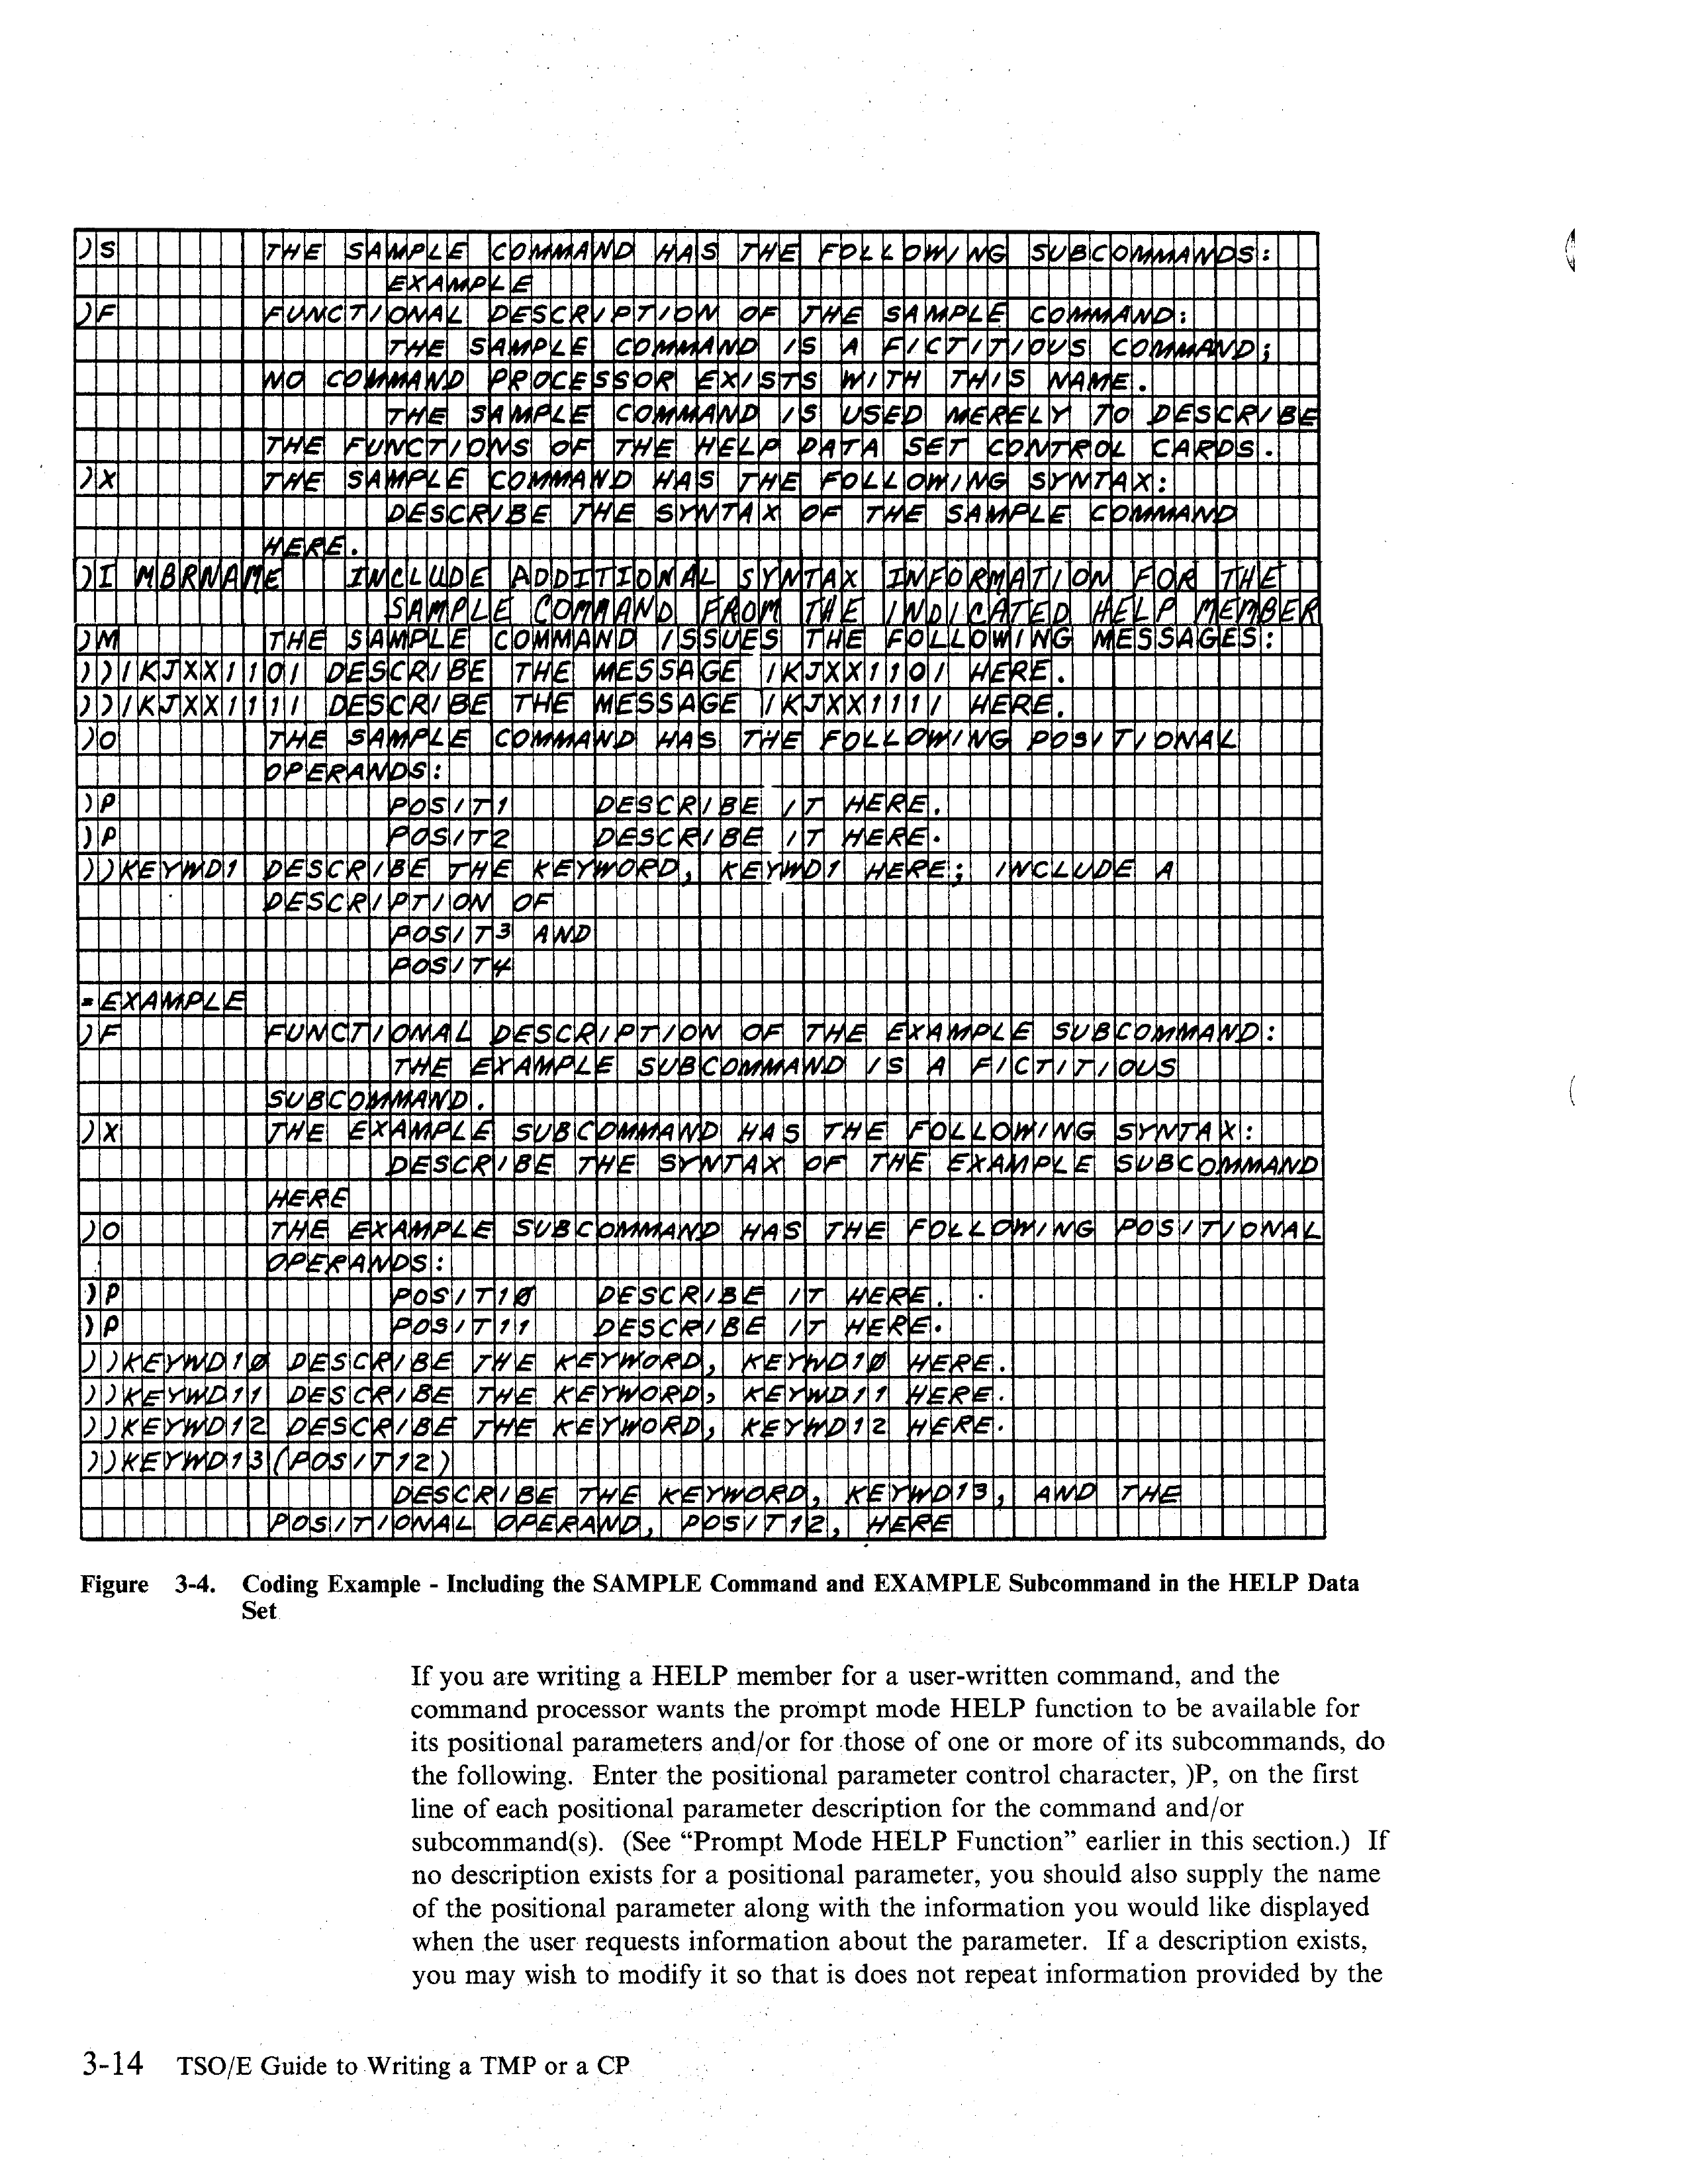 )S THE SAMPLE COMMAND HAS THE FOLLOWING SUBCOMMANDS:
EXAMPLE
)F FUNCTIONAL DESCRIPTION OF THE SAMPLE COMMAND:
THE SAMPLE COMMAND IS A FICTITIOUS COMMAND;
NO COMMAND PROCESSOR EXISTS WITH THIS NAME.
THE SAMPLE COMMAND IS USED MERELY TO DESCRIBE
THE FUNCTIONS OF THE HELP DATA SET CONTROL CARDS.
)X THE SAMPLE COMMAND HAS THE FOLLOWING SYNTAX:
DESCRIBE THE SYNTAX OF THE SAMPLE COMMAND
HERE.
)I MBRNAME INCLUDE ADDITIONAL SYNTAX INFORMATION FOR THE
SAMPLE COMMAND FROM THE INDICATED HELP MEMBER
)M THE SAMPLE COMMAND ISSUES THE FOLLOWING MESSAGES:
))IKJXX110I DESCRIBE THE MESSAGE IKJXX110I HERE.
))IKJXX111I DESCRIBE THE MESSAGE IKJXX111I HERE.
)O THE SAMPLE COMMAND HAS THE FOLLOWING POSITIONAL
OPERANDS:
)P POSIT1 DESCRIBE IT HERE.
)P POSIT2 DESCRIBE IT HERE.
))KEYWD1 DESCRIBE THE KEYWORD, KEYWD1 HERE; INCLUDE A
DESCRIPTION OF
POSIT3 AND
POSIT4
=EXAMPLE
)F FUNCTIONAL DESCRIPTION OF THE EXAMPLE SUBCOMMAND:
THE EXAMPLE SUBCOMMAND IS A FICTITIOUS
SUBCOMMAND.
)X THE EXAMPLE SUBCOMMAND HAS THE FOLLOWING SYNTAX:
DESCRIBE THE SYNTAX OF THE EXAMPLE SUBCOMMAND
HERE
)O THE EXAMPLE SUBCOMMAND HAS THE FOLLOWING POSITIONAL
OPERANDS:
)P POSIT1Ø DESCRIBE IT HERE.
)P POSIT11 DESCRIBE IT HERE.
))KEYWD1Ø DESCRIBE THE KEYWORD, KEYWD1Ø HERE.
))KEYWD11 DESCRIBE THE KEYWORD, KEYWD11 HERE.
))KEYWD12 DESCRIBE THE KEYWORD, KEYWD12 HERE.
))KEYWD13(POSIT12)
DESCRIBE THE KEYWORD, KEYWD13, AND THE
POSITIONAL OPERAND, POSIT12, HERE
Figure 3-4. Coding Example - Including the SAMPLE Command and EXAMPLE Subcommand in the HELP Data
Set
If you are writing a HELP member for a user-written command, and the
command processor wants the prompt mode HELP function to be available for
its positional parameters and/or for those of one or more of its subcommands, do
the following. Enter the positional parameter control character, )P, on the first
line of each positional parameter description for the command and/or
subcommand(s). (See “Prompt Mode HELP Function” earlier in this section.) If
no description exists for a positional parameter, you should also supply the name
of the positional parameter along with the information you would like displayed
when the user requests information about the parameter. If a description exists,
you may wish to modify it so that is does not repeat information provided by the
3-14 TSO/E Guide to Writing a TMP or a CP